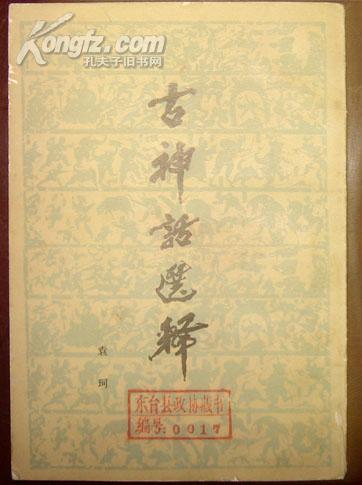 Kongfz.com
孔夫子旧书网
古神話選釋
袁珂
东台县政协藏书
编号:0017